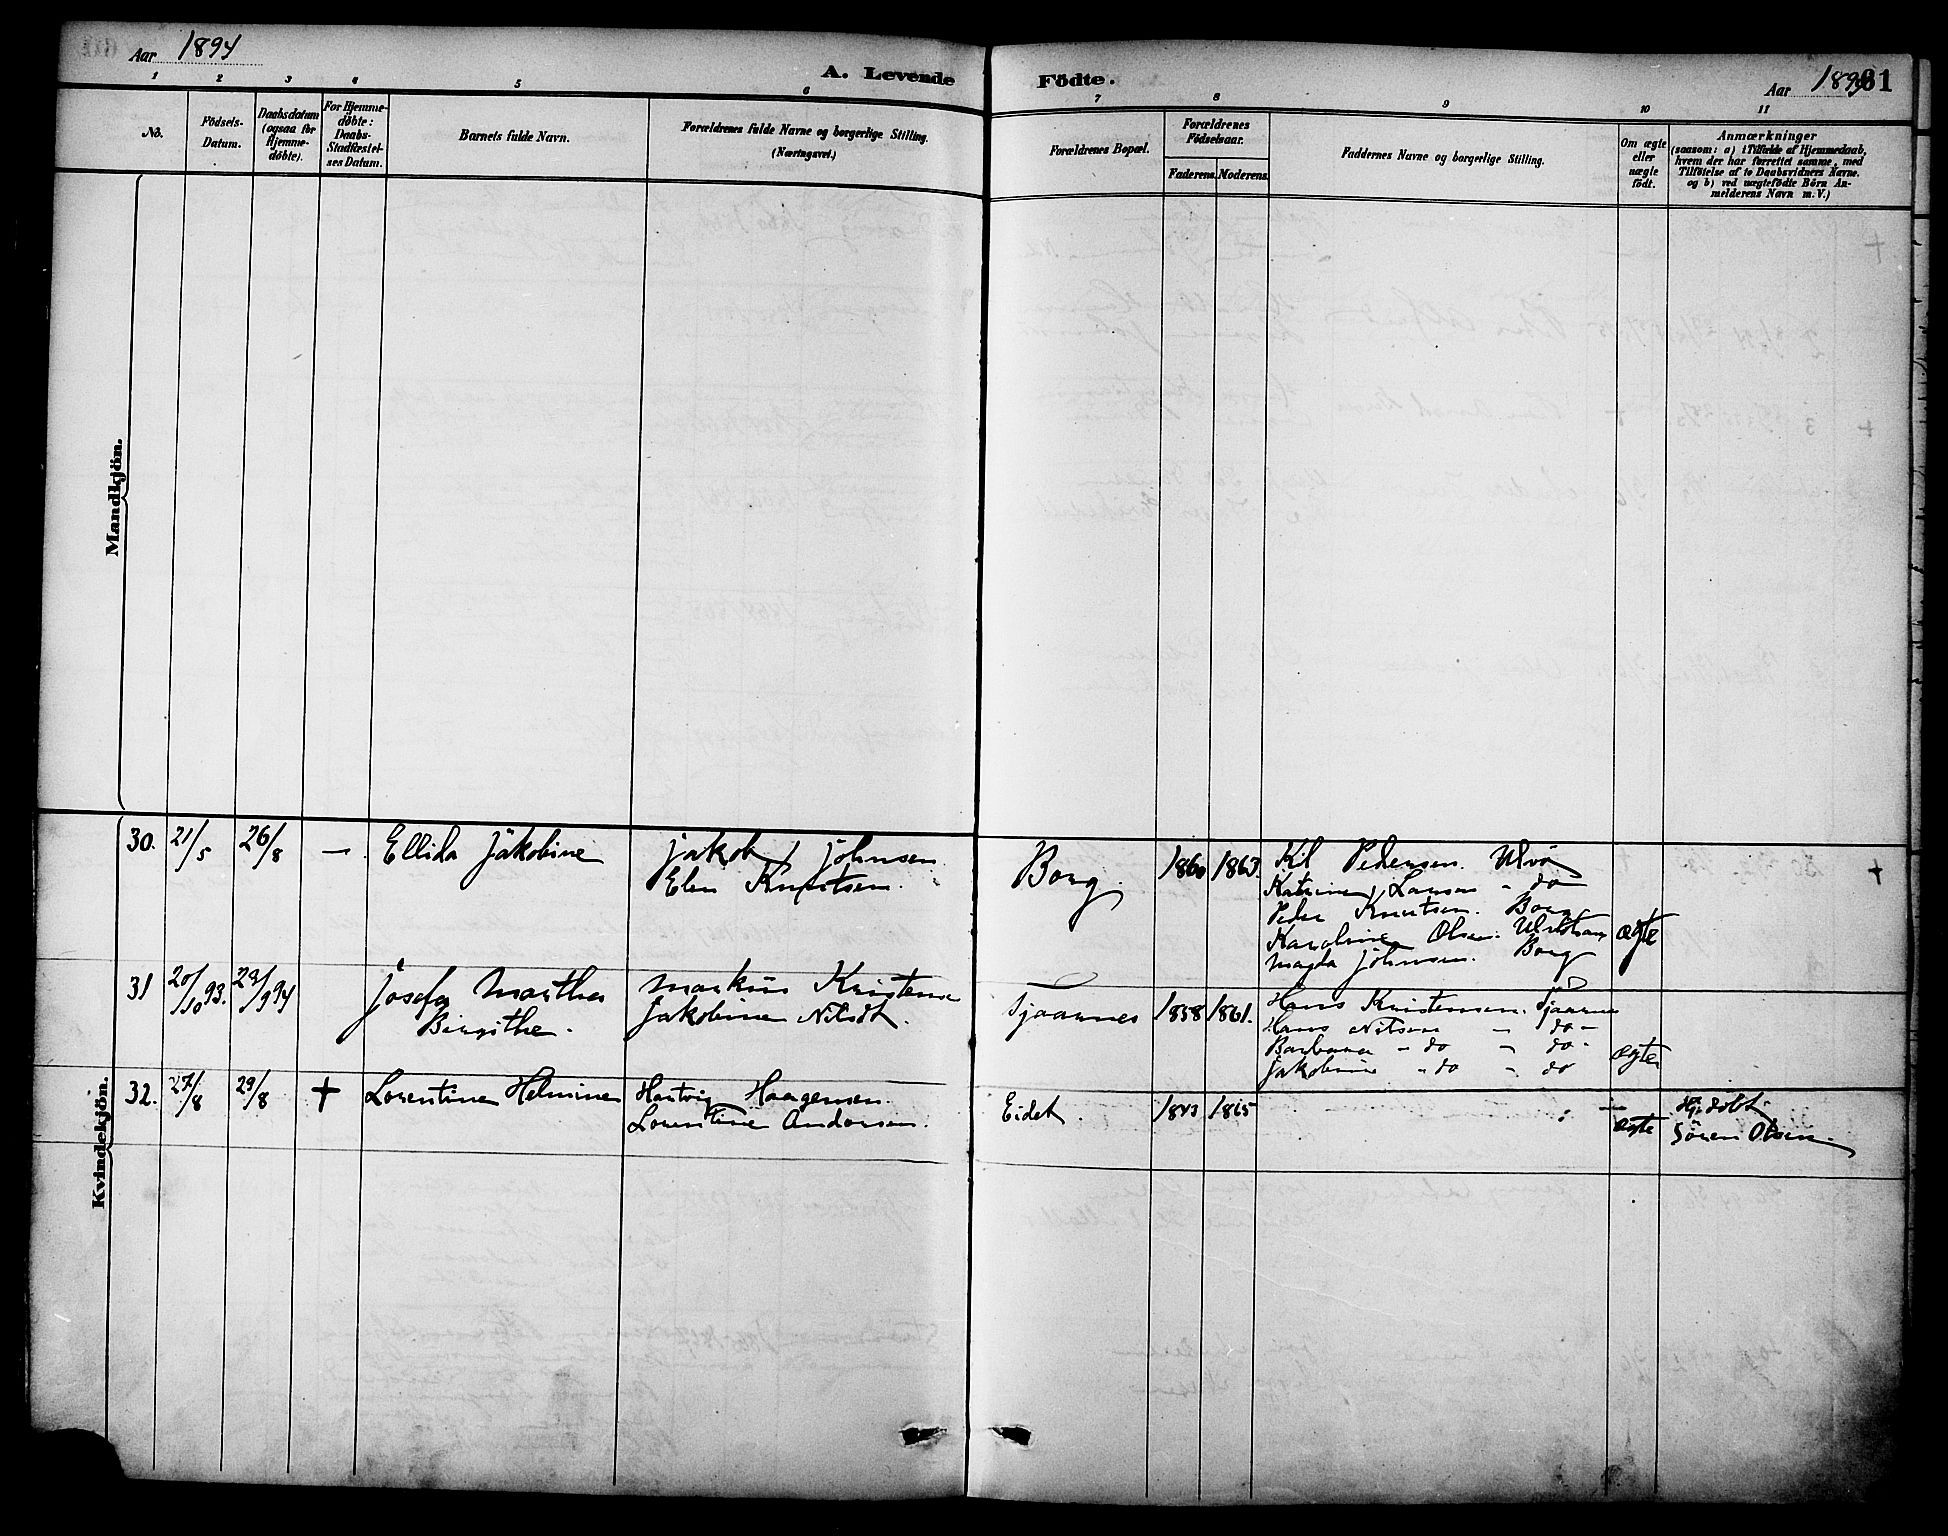 Aar 1894
A. Levende Födte.
Aar 1894 61
1 2 3 4 5 6 7 8 9 10 11
No.
Födsels-
Datum.
Daabsdatum
(ogsaa för
Hjemme-
döbte).
For Hjemme-
döbte:
Daabs-
Stadfæstel-
ses Datum.
Barnets fulde Navn.
Forældrenes fulde Navne og borgerlige Stilling.
(Næringsvei.)
Forældrenes Bopæl.
Forældrenes
Födselsaar.
Faderens. Moderens.
Faddernes Navne og borgerlige Stilling.
Om ægte
eller
uægte
födt.
Anmærkninger
(saasom: a) i Tilfælde af Hjemmedaab,
hvem der har forrettet samme, med
Tilföielse af to Daabsvidners Navne.
og b) ved uægtefödte Börn An-
melderens Navn m.V.)
Mandkjön.
Kvindekjön.
30. 21/5 26/8 — Ellida Jakobine
Jakob Johnsen
Elen Knutsen.
Borg. 1860 1863.
Kil Pedersen. Ulvö
Katrine Larsen - do
Peder Knutsen. Borg
Karoline Olsen.
Magda Johnsen. Borg
ægte
31 20/10 93. 29/9 94
Josefa Martha
Birgithe.
Markus Kristensen
Jakobine Nilsdt.
Sjaarnes 1858 1861.
Hans Kristensen. Sjaarnes
Hans Nilsen - do -
Barbara - do - do -
Jakobine - do - do
ægte
32. 27/8 29/8 + Lorentine Helmine
Hartvig Haagensen.
Lorentine Andersen.
Eidet. 1843 1865
ægte
Hj. döbt
Sören Olsen.